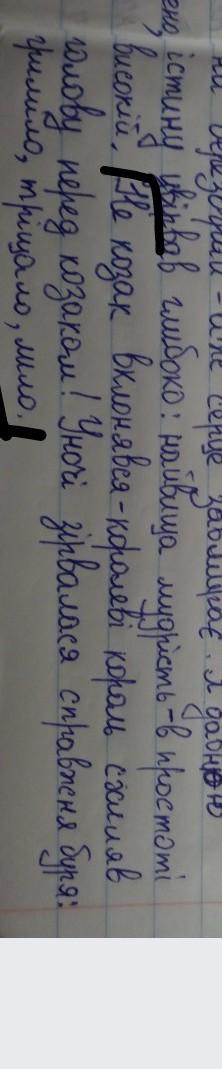 серце завмирає. Я давню
істину увібрав глибоко: найвища мудрість - в простоті
високій. Не козак вклонявся - королеві король схиляв
голову перед козаком! Уночі зірвалася справжня буря:
гриміло, тріщало, лило.